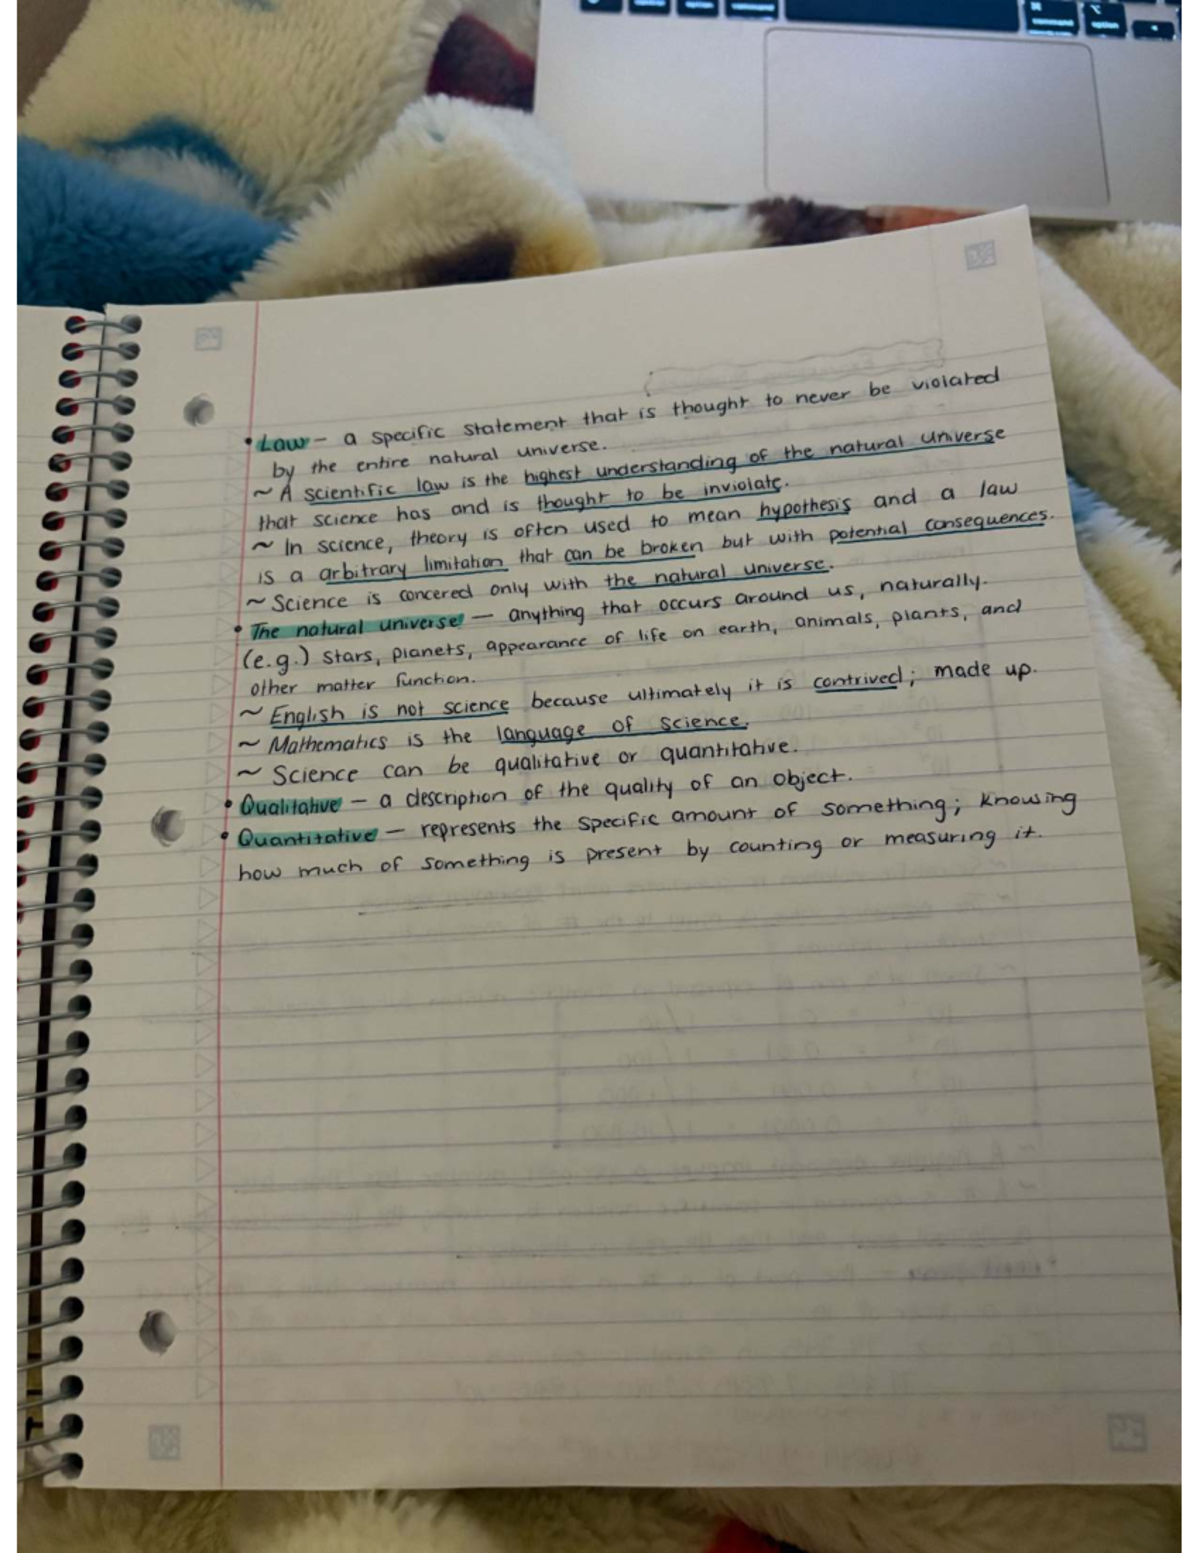 command
option
• Law – a specific statement that is thought to never be violated
by the entire natural universe.
~ A scientific law is the highest understanding of the natural universe
that science has and is thought to be inviolate.
~ In science, theory is often used to mean hypothesis and a law
is a arbitrary limitation that can be broken but with potential consequences.
~ Science is concered only with the natural universe.
• The natural universe – anything that occurs around us, naturally.
(e.g.) stars, planets, appearance of life on earth, animals, plants, and
other matter function.
~ English is not science because ultimately it is contrived; made up.
~ Mathematics is the language of science.
~ Science can be qualitative or quantitative.
• Qualitative – a description of the quality of an object.
• Quantitative – represents the specific amount of something; knowing
how much of something is present by counting or measuring it.